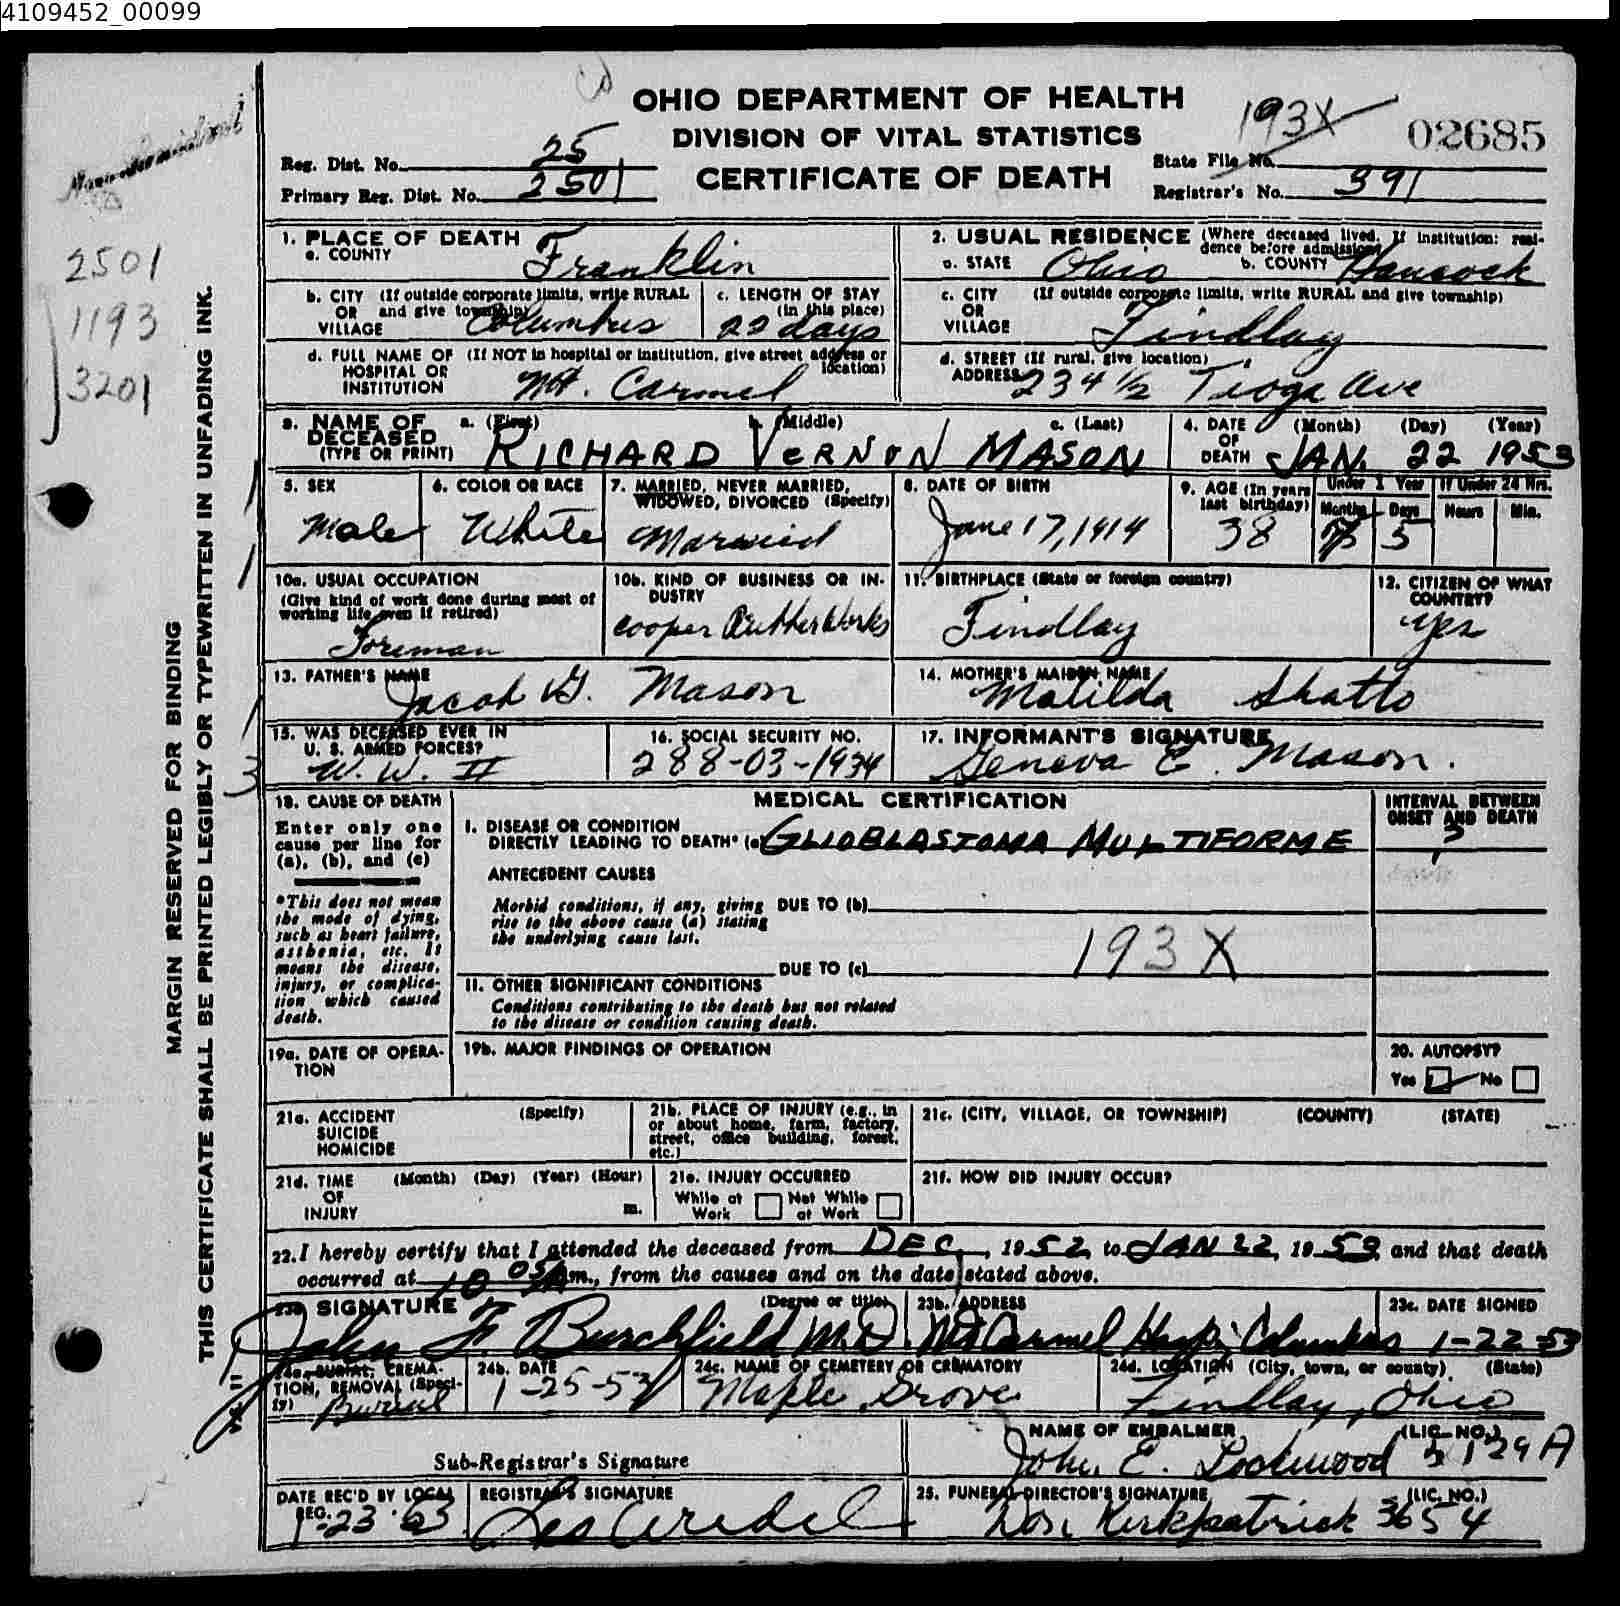 4109452_00099
OHIO DEPARTMENT OF HEALTH
DIVISION OF VITAL STATISTICS
CERTIFICATE OF DEATH
193X
02685
Reg. Dist. No. 25
Primary Reg. Dist. No. 2501
State File No.
Registrar's No. 391
2501
1193
3201
MARGIN RESERVED FOR BINDING
THIS CERTIFICATE SHALL BE PRINTED LEGIBLY OR TYPEWRITTEN IN UNFADING INK.
1. PLACE OF DEATH
a. COUNTY Franklin
2. USUAL RESIDENCE (Where deceased lived. If institution: residence before admission)
a. STATE Ohio b. COUNTY Hancock
b. CITY (If outside corporate limits, write RURAL and give township) OR VILLAGE Columbus
c. LENGTH OF STAY (in this place) 22 days
c. CITY (If outside corporate limits, write RURAL and give township) OR VILLAGE Findlay
d. FULL NAME OF (If NOT in hospital or institution, give street address or location) HOSPITAL OR INSTITUTION Mt. Carmel
d. STREET (If rural, give location) ADDRESS 234 1/2 Tioga Ave
3. NAME OF DECEASED (TYPE OR PRINT) a. (First) b. (Middle) c. (Last)
RICHARD VERNON MASON
4. DATE OF DEATH (Month) (Day) (Year)
JAN. 22 1953
5. SEX Male
6. COLOR OR RACE White
7. MARRIED, NEVER MARRIED, WIDOWED, DIVORCED (Specify) Married
8. DATE OF BIRTH June 17, 1914
9. AGE (In years last birthday) 38
Under 1 Year Months 7 Days 5
If Under 24 Hrs. Hours Min.
10a. USUAL OCCUPATION (Give kind of work done during most of working life, even if retired) Foreman
10b. KIND OF BUSINESS OR INDUSTRY Cooper Rubber Works
11. BIRTHPLACE (State or foreign country) Findlay
12. CITIZEN OF WHAT COUNTRY? yes
13. FATHER'S NAME Jacob G. Mason
14. MOTHER'S MAIDEN NAME Matilda Shatto
15. WAS DECEASED EVER IN U. S. ARMED FORCES? W. W. II
16. SOCIAL SECURITY NO. 288-03-1934
17. INFORMANT'S SIGNATURE Geneva E. Mason.
18. CAUSE OF DEATH
Enter only one cause per line for (a), (b), and (c)
*This does not mean the mode of dying, such as heart failure, asthenia, etc. It means the disease, injury, or complication which caused death.
MEDICAL CERTIFICATION
INTERVAL BETWEEN ONSET AND DEATH
?
I. DISEASE OR CONDITION DIRECTLY LEADING TO DEATH* (a) GLIOBLASTOMA MULTIFORME
ANTECEDENT CAUSES
Morbid conditions, if any, giving rise to the above cause (a) stating the underlying cause last.
DUE TO (b)
DUE TO (c)
193X
II. OTHER SIGNIFICANT CONDITIONS
Conditions contributing to the death but not related to the disease or condition causing death.
19a. DATE OF OPERATION
19b. MAJOR FINDINGS OF OPERATION
20. AUTOPSY?
Yes No
21a. ACCIDENT SUICIDE HOMICIDE (Specify)
21b. PLACE OF INJURY (e.g., in or about home, farm, factory, street, office building, forest, etc.)
21c. (CITY, VILLAGE, OR TOWNSHIP) (COUNTY) (STATE)
21d. TIME OF INJURY (Month) (Day) (Year) (Hour) m.
21e. INJURY OCCURRED
While at Work Not While at Work
21f. HOW DID INJURY OCCUR?
22. I hereby certify that I attended the deceased from DEC, 1952, to JAN 22, 1953 and that death
occurred at 10 05 Am., from the causes and on the date stated above.
23a. SIGNATURE (Degree or title) John F. Burchfield M.D.
23b. ADDRESS Mt Carmel Hosp, Columbus
23c. DATE SIGNED 1-22-53
24a. BURIAL, CREMATION, REMOVAL (Specify) Burial
24b. DATE 1-25-53
24c. NAME OF CEMETERY OR CREMATORY Maple Grove
24d. LOCATION (City, town, or county) (State) Findlay, Ohio
Sub-Registrar's Signature
NAME OF EMBALMER (LIC. NO.)
John E. Lockwood 5129A
DATE REC'D BY LOCAL REG. 1-23-53
REGISTRAR'S SIGNATURE
25. FUNERAL DIRECTOR'S SIGNATURE (LIC. NO.)
Don Kirkpatrick 3654